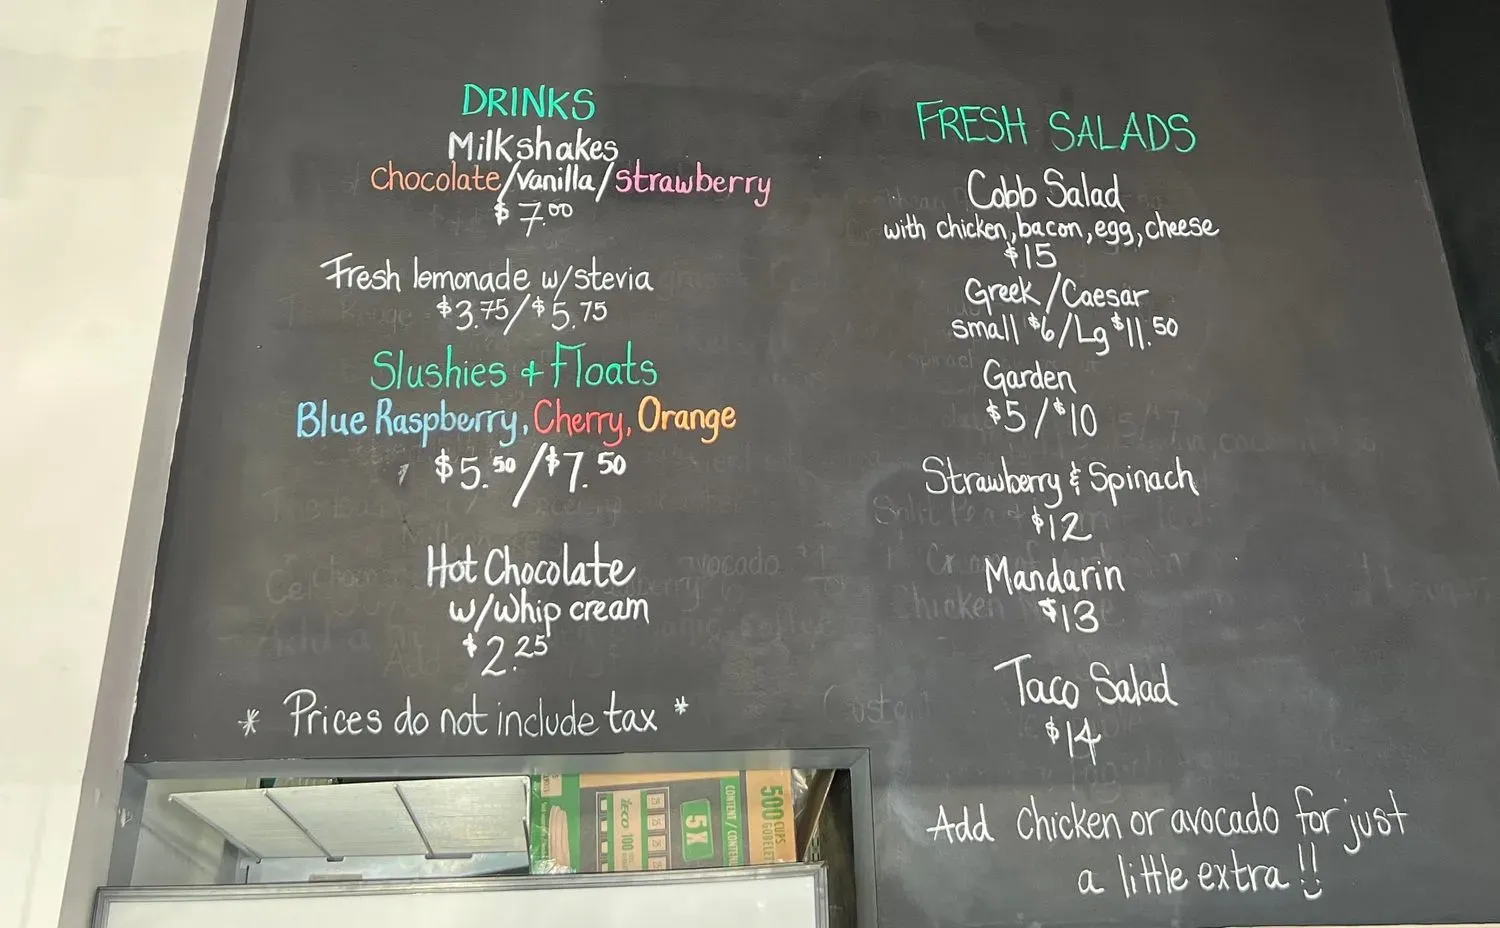 DRINKS
Milkshakes
chocolate/vanilla/strawberry
$7.00
Fresh lemonade w/stevia
$3.75/$5.75
Slushies & Floats
Blue Raspberry, Cherry, Orange
$5.50/$7.50
Hot Chocolate
w/whip cream
$2.25
* Prices do not include tax *
FRESH SALADS
Cobb Salad
with chicken, bacon, egg, cheese
$15
Greek/Caesar
small $6/Lg $11.50
Garden
$5/$10
Strawberry & Spinach
$12
Mandarin
$13
Taco Salad
$14
Add Chicken or avocado for just
a little extra!!
ieco
100
5X
CONTENT / CONTENU
500 CUPS
GOBELETS